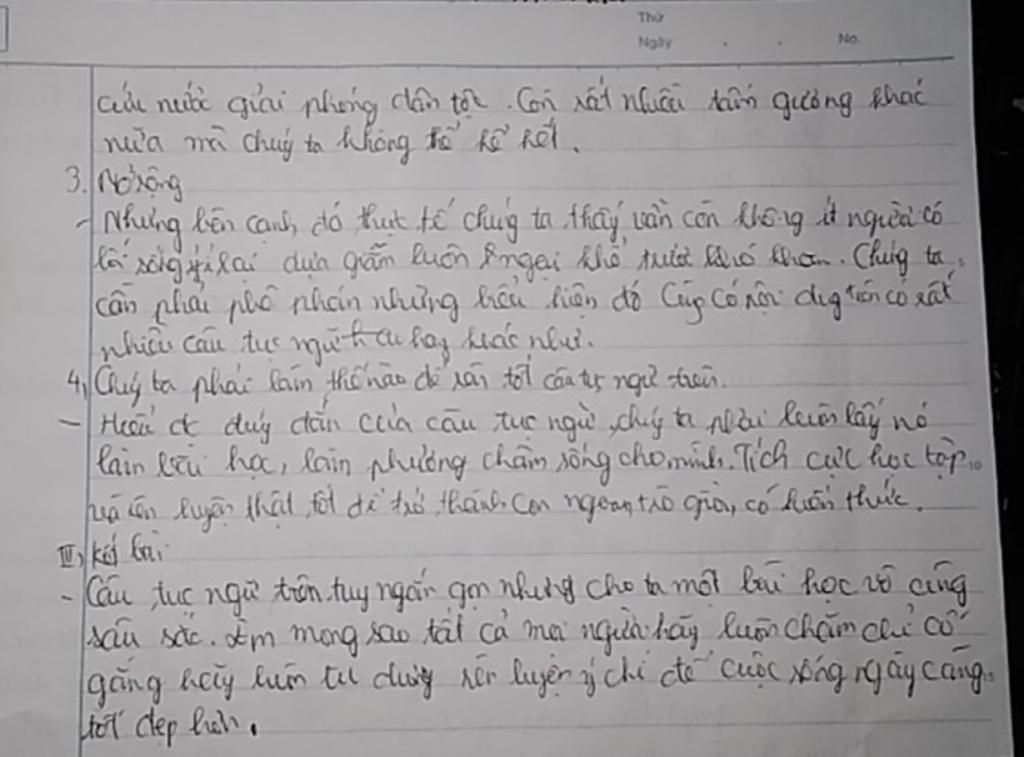 Thứ
Ngày . . No.
cứu nước giải phóng dân tộc. Còn rất nhiều tấm gương khác
nữa mà chúg ta không thể kể hết.
3. Mở rộng
- Nhưng bên cạnh, đó thực tế chúg ta thấy vẫn còn không ít người có
lối sống ỷ lại dựa giẫm luôn ngại khó trước khó khăn. Chúg ta
cần phải phê phán những biểu hiện đó Cũg có nội dug trên có rất
nhiều câu tục ngữ hay khác như.
4, Chúg ta phải làm thế nào để tốt câu tục ngữ trên.
- Hiểu đc đúg đắn của câu tục ngữ, chúg ta phải luôn lấy nó
làm bài học, làm phương châm sống cho mình. Tích cực học tập
và rèn luyện thật tốt để trở thành con ngoan, trò giỏi, có kiến thức.
III, Kết bài
- Câu tục ngữ trên tuy ngắn gọn nhưng cho ta một bài học vô cùng
sâu sắc. Em mong sao tất cả mọi người hãy luôn chăm chỉ cố
gắng hãy luôn tu dưỡng rèn luyện ý chí để cuộc sống ngày càng
tốt đẹp hơn.